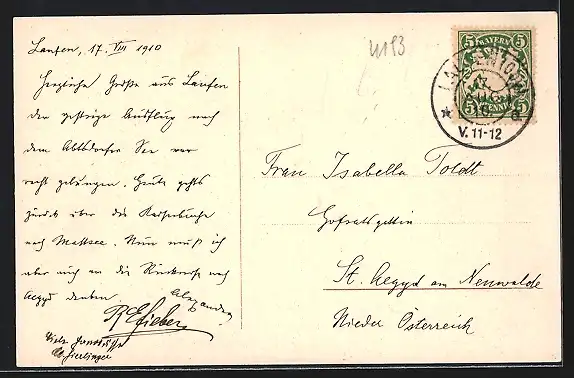 Laufen, 17. VIII 1910
Herzliche Grüße aus Laufen
der gestrige Ausflug nach
dem Abtsdorfer See war
recht gelungen. Heute gehts
zurück über das
nach Mattsee. Nun muß ich
aber auch an die Rückreise nach
Aegyd denken.
Alexander
REfieber
4193
5 BAYERN 5
5 PFENNIG 5
LAUFEN
17
V. 11-12
Frau Isabella Toldt
Hofratsgattin
St. Aegyd am Neuwalde
Nieder Österreich